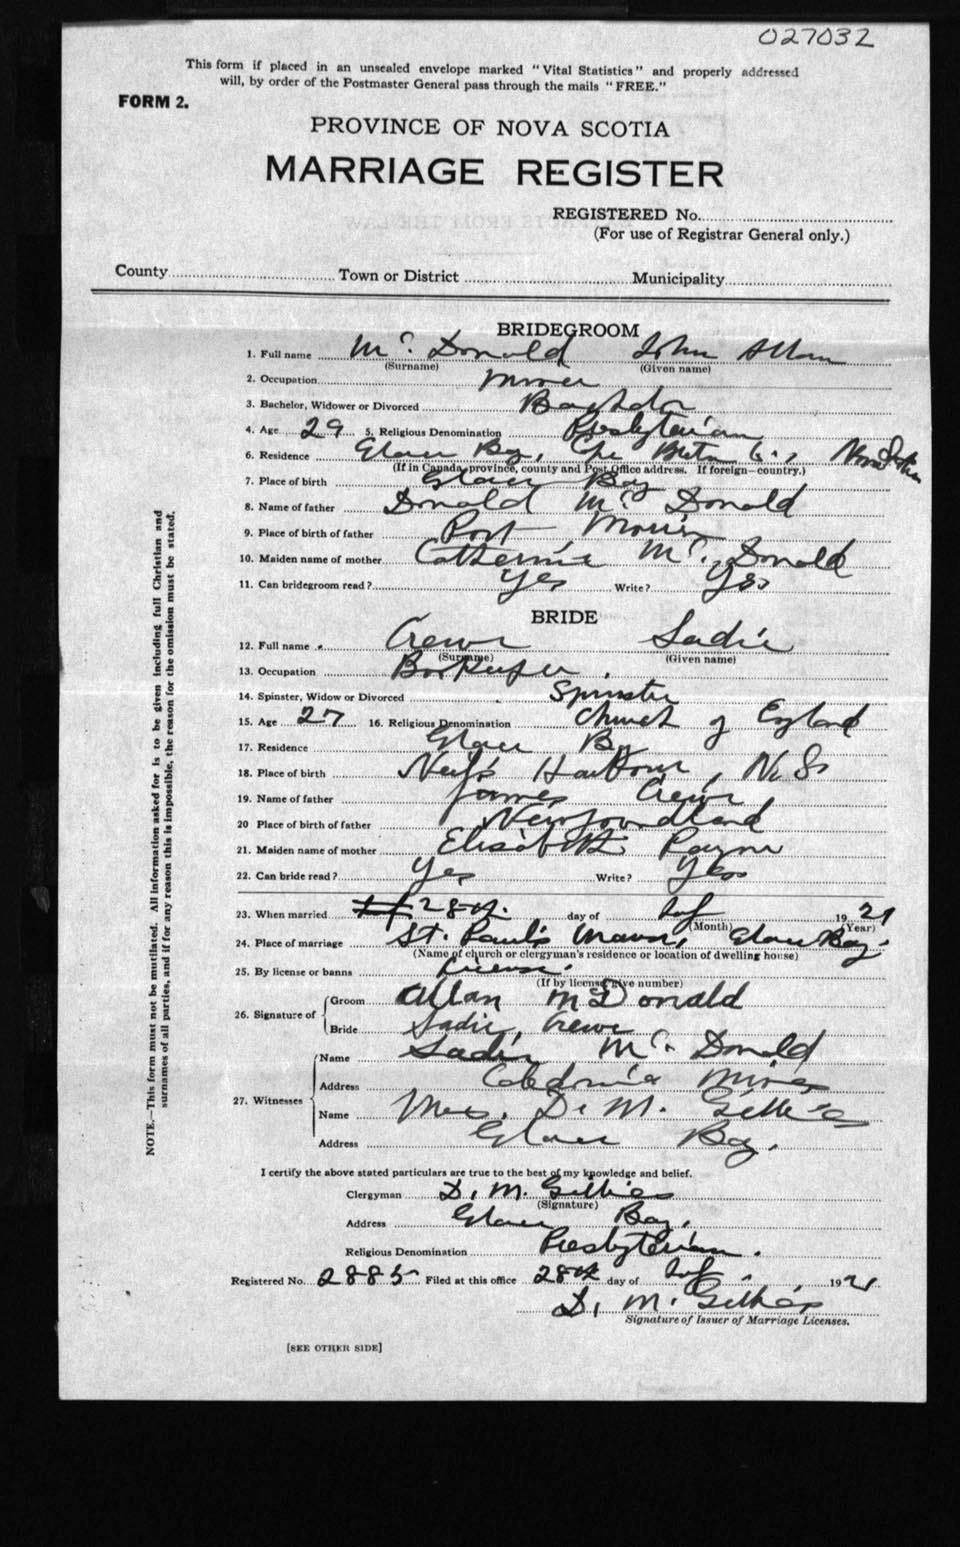 027032
This form if placed in an unsealed envelope marked "Vital Statistics" and properly addressed
will, by order of the Postmaster General pass through the mails "FREE."
FORM 2.
PROVINCE OF NOVA SCOTIA
MARRIAGE REGISTER
REGISTERED No.
(For use of Registrar General only.)
County Town or District Municipality
BRIDEGROOM
1. Full name Mc. Donald John Allan
(Surname) (Given name)
2. Occupation Miner
3. Bachelor, Widower or Divorced Bachelor
4. Age 29 5. Religious Denomination Presbyterian
6. Residence Glace Bay, Cape Breton Co., Nova Scotia
(If in Canada, province, county and Post Office address. If foreign—country.)
7. Place of birth Glace Bay
8. Name of father Donald Mc. Donald
9. Place of birth of father Port Morien
10. Maiden name of mother Catherine Mc. Donald
11. Can bridegroom read? Yes Write? Yes
BRIDE
12. Full name Crewe Sadie
(Surname) (Given name)
13. Occupation
14. Spinster, Widow or Divorced Spinster
15. Age 27 16. Religious Denomination Church of England
17. Residence Glace Bay
18. Place of birth Neil's Harbour, N.S.
19. Name of father James Crewe
20 Place of birth of father Newfoundland
21. Maiden name of mother Elisabeth Payne
22. Can bride read? Yes Write? Yes
23. When married 28th. day of 1921
(Month) (Year)
24. Place of marriage St. Paul's Manse, Glace Bay.
(Name of church or clergyman's residence or location of dwelling house)
25. By license or banns License.
(If by license, give number)
26. Signature of Groom Allan McDonald
Bride Sadie Crewe
27. Witnesses Name Sadie Mc. Donald
Address Caledonia Mines
Name Mrs. D. M. Gillies
Address Glace Bay.
I certify the above stated particulars are true to the best of my knowledge and belief.
Clergyman D. M. Gillies
(Signature)
Address Glace Bay.
Religious Denomination Presbyterian.
Registered No. 2885 Filed at this office 28th day of 1921
D. M. Gillies
Signature of Issuer of Marriage Licenses.
[SEE OTHER SIDE]
NOTE.—This form must not be mutilated. All information asked for is to be given including full Christian and
surnames of all parties, and if for any reason this is impossible, the reason for the omission must be stated.